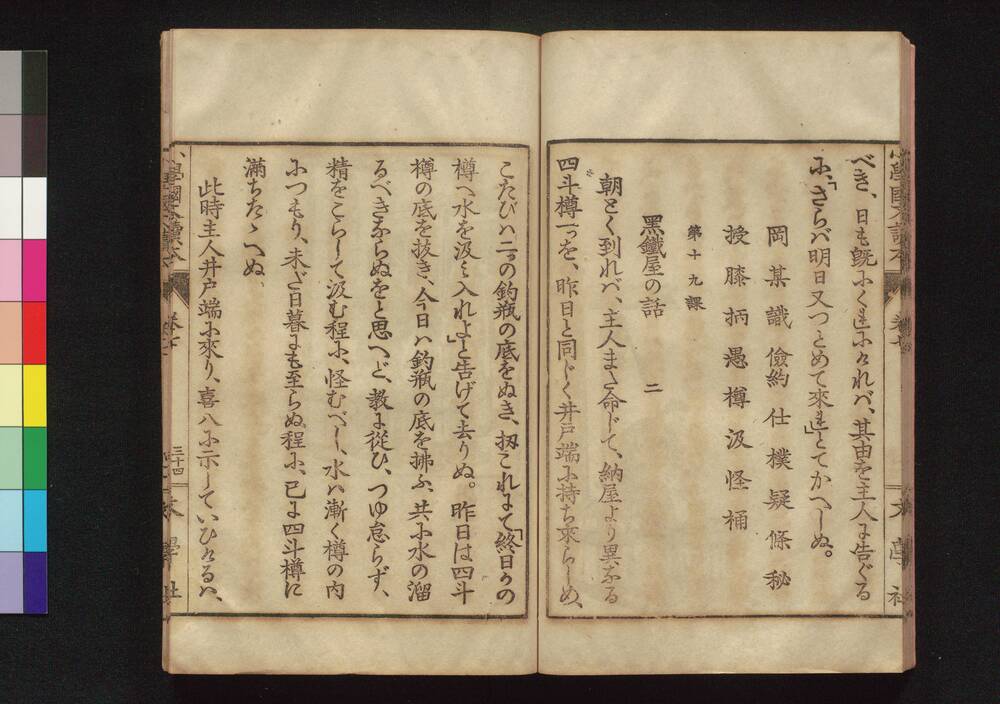 べき、日も既にくれにければ、其由を主人に告ぐる
に、「さらば明日又つとめて來れ」とてかへしぬ。
岡 某 識 儉 約 仕 樸 疑 條 秘
授 膝 柄 愚 樽 汲 怪 桶
第十九課
黑鐵屋の話 二
朝とく到れば、主人また命じて、納屋より異なる
四斗樽一つを、昨日と同じく井戸端に持ち來らしめ、
こたびは二つの釣瓶の底をぬき、扨これにて「終日かの
樽へ水を汲み入れよ」と告げて去りぬ。昨日は四斗
樽の底を抜き、今日は釣瓶の底を拂ふ、共に水の溜
るべきならぬをと思へど、教に從ひ、つゆ怠らず、
精をこらして汲む程に、怪むべし、水は漸く樽の内
につもり、未だ日暮にも至らぬ程に、已に四斗樽に
滿ちたゝへぬ。
此時主人井戸端に來り、喜八に示していひけるは、
小學國文讀本
卷七
三十四
文學社